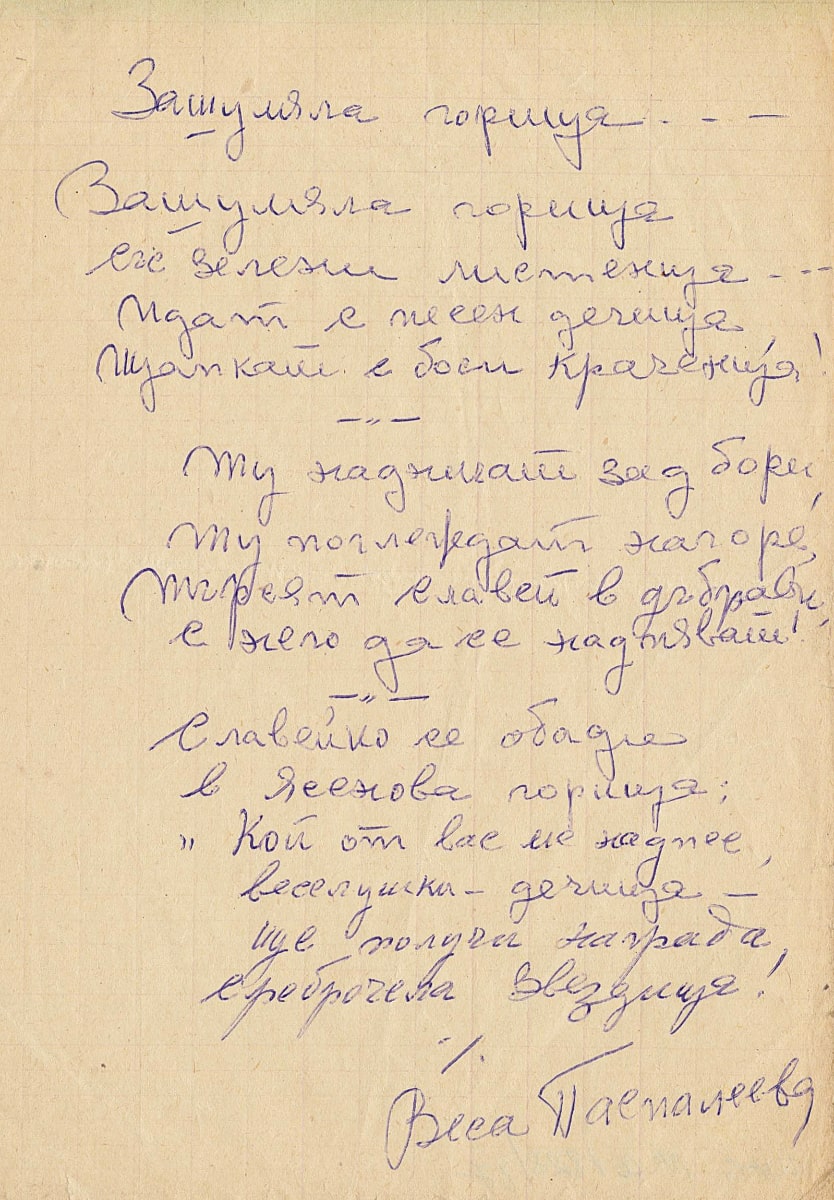 Зашумяла горица . - - -
Зашумяла горица
със зелени листенца - - -
Идат с песен дечица,
Щапкат с боси краченца!
— „ —
Ту надничат зад бори,
Ту поглеждат нагоре,
Търсят славей в дъбрави,
с него да се надпяват!
— „ —
Славейко се обади
в ясенова горица:
„ Кой от вас ме надпее,
веселушки - дечица —
ще получи награда,
среброчела звездица!
./.
Веса Паспалеева